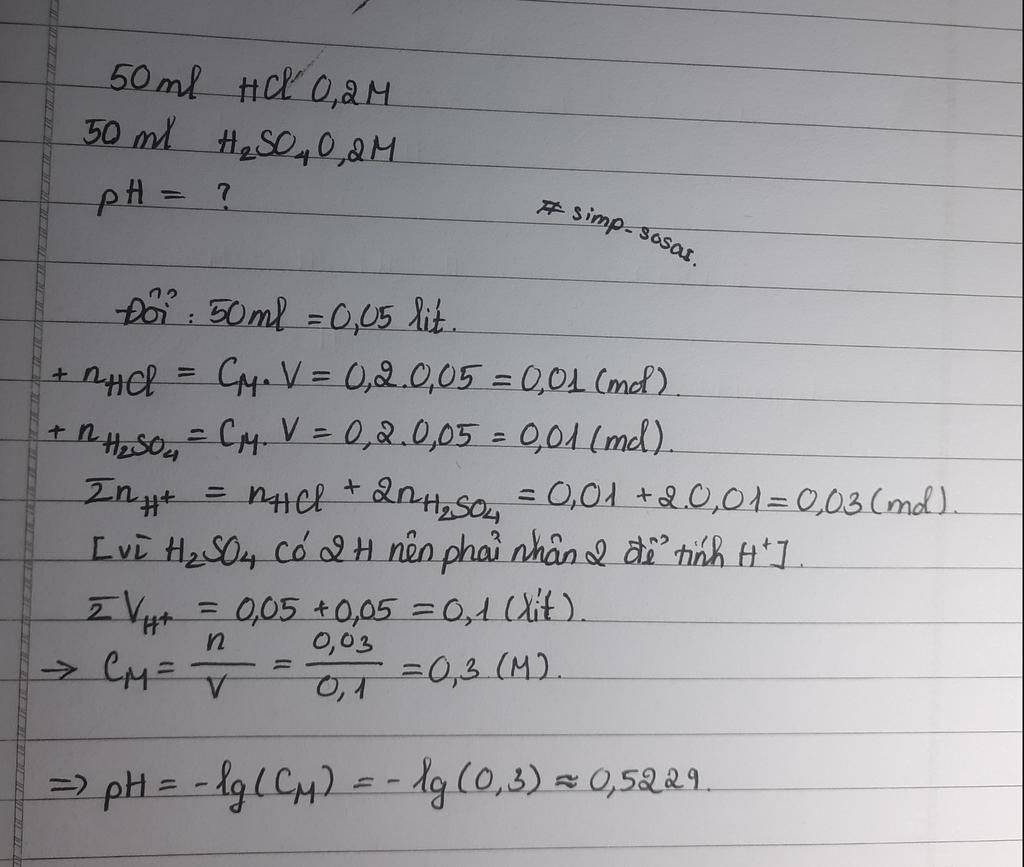 50ml HCl 0,2M
50 ml H₂SO₄ 0,2M
pH = ?
# simp-sosar.
Đổi : 50ml = 0,05 lit.
+ nHCl = CM. V = 0,2.0,05 = 0,01 (mol).
+ nH₂SO₄ = CM. V = 0,2.0,05 = 0,01 (mol).
ΣnH⁺ = nHCl + 2nH₂SO₄ = 0,01 + 2.0,01 = 0,03 (mol).
[vì H₂SO₄ có 2H nên phải nhân 2 để tính H⁺].
ΣVH⁺ = 0,05 + 0,05 = 0,1 (lít).
→ CM = n/V = 0,03/0,1 = 0,3 (M).
=> pH = -lg(CM) = - lg(0,3) ≈ 0,5229.